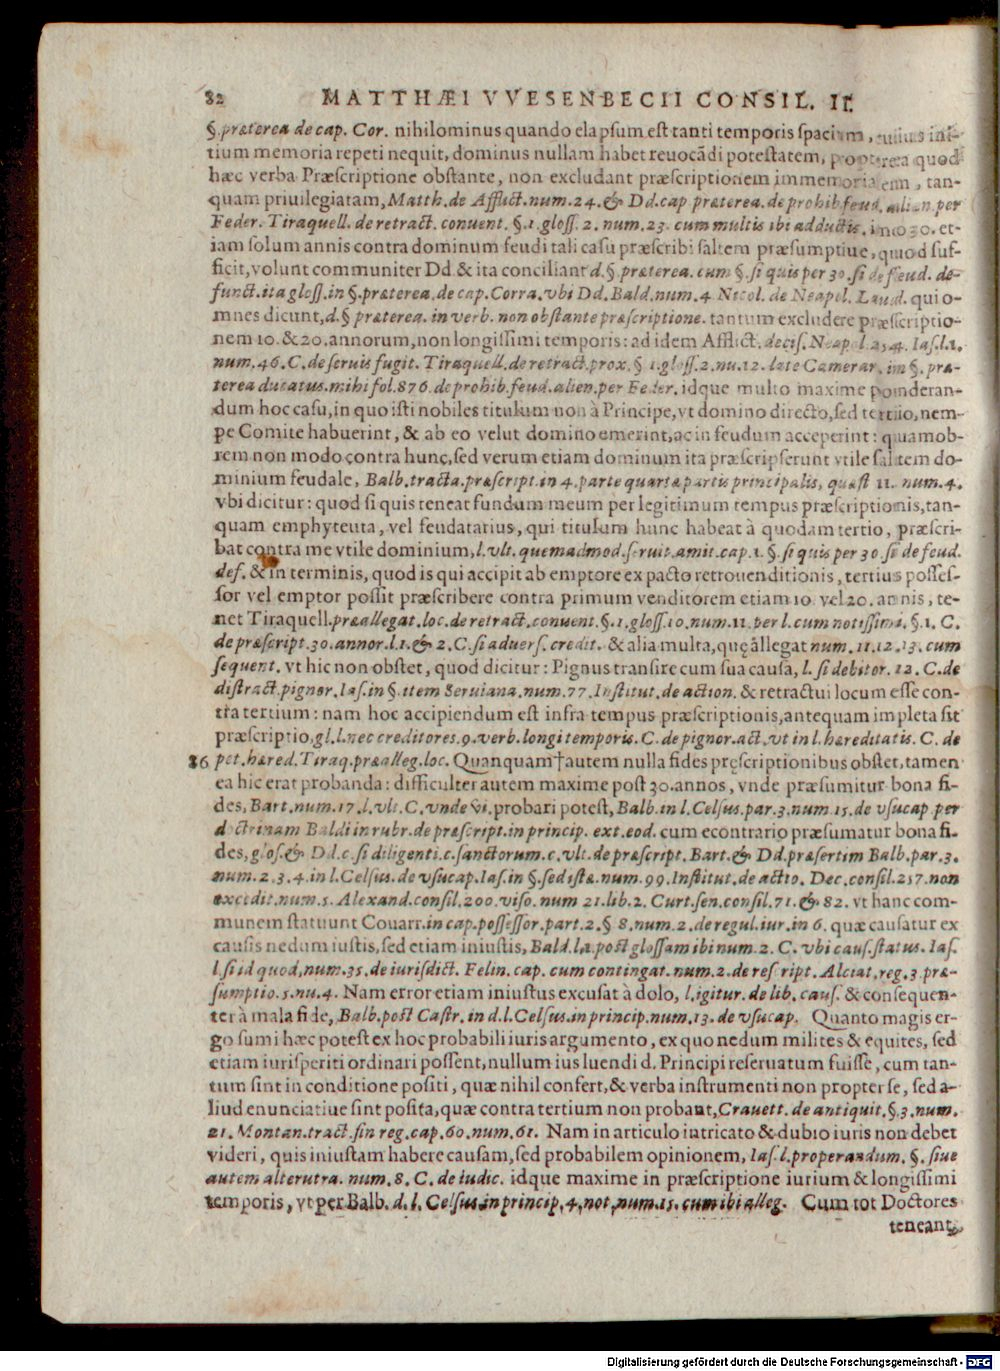 82 MATTHÆI VVESENBECII CONSIL. II.
§. præterea de cap. Cor. nihilominus quando elapsum est tanti temporis spacium, cuius ini-
tium memoria repeti nequit, dominus nullam habet reuocādi potestatem, propterea quod
hæc verba Præscriptione obstante, non excludant præscriptionem immemorialem, tan-
quam priuilegiatam, Matth. de Afflict. num. 24. & Dd. cap præterea. de prohib. feud. alien. per
Feder. Tiraquell. de retract. conuent. §. 1. gloss. 2. num. 23. cum multis ibi adductis. imò 30. et-
iam solum annis contra dominum feudi tali casu præscribi saltem præsumptiue, quod suf-
ficit, volunt communiter Dd. & ita conciliant d. §. præterea. cum §. si quis per 30. si de feud. de-
funct. ita gloss. in §. præterea. de cap. Corra. vbi Dd. Bald. num. 4. Nicol. de Neapol. Laud. qui o-
mnes dicunt, d. § præterea. in verb. non obstante præscriptione. tantum excludere præscriptio-
nem 10. & 20. annorum, non longissimi temporis: ad idem Afflict. decis. Neapol. 254. Ias. l. 1.
num. 46. C. de seruis fugit. Tiraquell. de retract. prox. § 1. gloss. 2. nu. 12. late Camerar. in §. præ-
terea ducatus. mihi fol. 876. de prohib. feud. alien. per Feder. idque multo maxime ponderan-
dum hoc casu, in quo isti nobiles titulum non à Principe, vt domino directo, sed tertio, nem-
pe Comite habuerint, & ab eo velut domino emerint, ac in feudum acceperint: quamob-
rem non modo contra hunc, sed verum etiam dominum ita præscripserunt vtile saltem do-
minium feudale, Balb. tracta. præscript. in 4. parte quartæ partis principalis, quæst 11. num. 4.
vbi dicitur: quod si quis teneat fundum meum per legitimum tempus præscriptionis, tan-
quam emphyteuta, vel feudatarius, qui titulum hunc habeat à quodam tertio, præscri-
bat contra me vtile dominium, l. vlt. quemadmod. seruit. amit. cap. 1. §. si quis per 30. si de feud.
def. & in terminis, quod is qui accipit ab emptore ex pacto retrouenditionis, tertius posses-
sor vel emptor possit præscribere contra primum venditorem etiam 10. vel 20. annis, te-
net Tiraquell. præallegat. loc. de retract. conuent. §. 1. gloss. 10. num. 11. per l. cum notissimi. §. 1. C.
de præscript. 30. annor. l. 1. & 2. C. si aduers. credit. & alia multa, quę allegat num. 11. 12. 13. cum
sequent. vt hic non obstet, quod dicitur: Pignus transire cum sua causa, l. si debitor. 12. C. de
distract. pignor. Ias. in §. item Seruiana. num. 77. Institut. de action. & retractui locum esse con-
tra tertium: nam hoc accipiendum est infra tempus præscriptionis, antequam impleta sit
præscriptio, gl. l. nec creditores. 9. verb. longi temporis. C. de pignor. act. vt in l. hæreditatis. C. de
86 pet. hæred. Tiraq. præalleg. loc. Quanquam†autem nulla fides pręscriptionibus obstet, tamen
ea hic erat probanda: difficulter autem maxime post 30. annos, vnde præsumitur bona fi-
des, Bart. num. 17. l. vlt. C. vnde vi. probari potest, Balb. in l. Celsus. par. 3. num. 15. de vsucap. per
doctrinam Baldi in rubr. de præscript. in princip. ext. eod. cum econtrario præsumatur bona fi-
des, glos. & Dd. c. si diligenti. c. sanctorum. c. vlt. de præscript. Bart. & Dd. præsertim Balb. par. 3.
num. 2. 3. 4. in l. Celsus. de vsucap. Ias. in §. sed istæ. num. 99. Institut. de actio. Dec. consil. 257. non
excedit. num. 5. Alexand. consil. 200. viso. num 21. lib. 2. Curt. sen. consil. 71. & 82. vt hanc com-
munem statuunt Couarr. in cap. possessor. part. 2. § 8. num. 2. de regul. iur. in 6. quæ causatur ex
causis nedum iustis, sed etiam iniustis, Bald. l. 1. post glossam ibi num. 2. C. vbi caus. status. Ias.
l. si id quod, num. 35. de iurisdict. Felin. cap. cum contingat. num. 2. de rescript. Alciat. reg. 3. præ-
sumptio. 5. nu. 4. Nam error etiam iniustus excusat à dolo, l. igitur. de lib. caus. & consequen-
ter à mala fide, Balb. post Castr. in d. l. Celsus. in princip. num. 13. de vsucap. Quanto magis er-
go sumi hæc potest ex hoc probabili iuris argumento, ex quo nedum milites & equites, sed
etiam iurisperiti ordinari possent, nullum ius luendi d. Principi reseruatum fuisse, cum tan-
tum sint in conditione positi, quæ nihil confert, & verba instrumenti non propter se, sed a-
liud enunciatiue sint posita, quæ contra tertium non probant, Crauett. de antiquit. §. 3. num.
21. Montan. tract. fin reg. cap. 60. num. 61. Nam in articulo intricato & dubio iuris non debet
videri, quis iniustam habere causam, sed probabilem opinionem, Ias. l. properandum. §. siue
autem alterutra. num. 8. C. de iudic. idque maxime in præscriptione iurium & longissimi
temporis, vt per Balb. d. l. Celsus. in princip. 4. not. num. 15. cum ibi alleg. Cum tot Doctores
teneant,
Digitalisierung gefördert durch die Deutsche Forschungsgemeinschaft - DFG